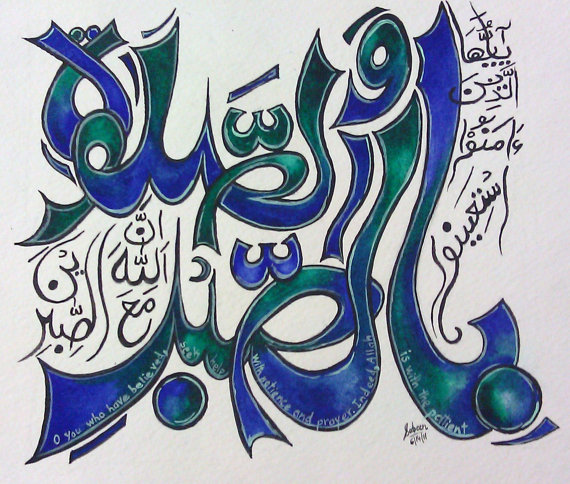 يَٰٓأَيُّهَا
الَّذِينَ
ءَامَنُوا
اسْتَعِينُوا
بِالصَّبْرِ
وَالصَّلَوٰةِ
إِنَّ
اللَّهَ
مَعَ
الصَّٰبِرِينَ
O you who have believed, seek help with patience and prayer. Indeed, Allah is with the patient